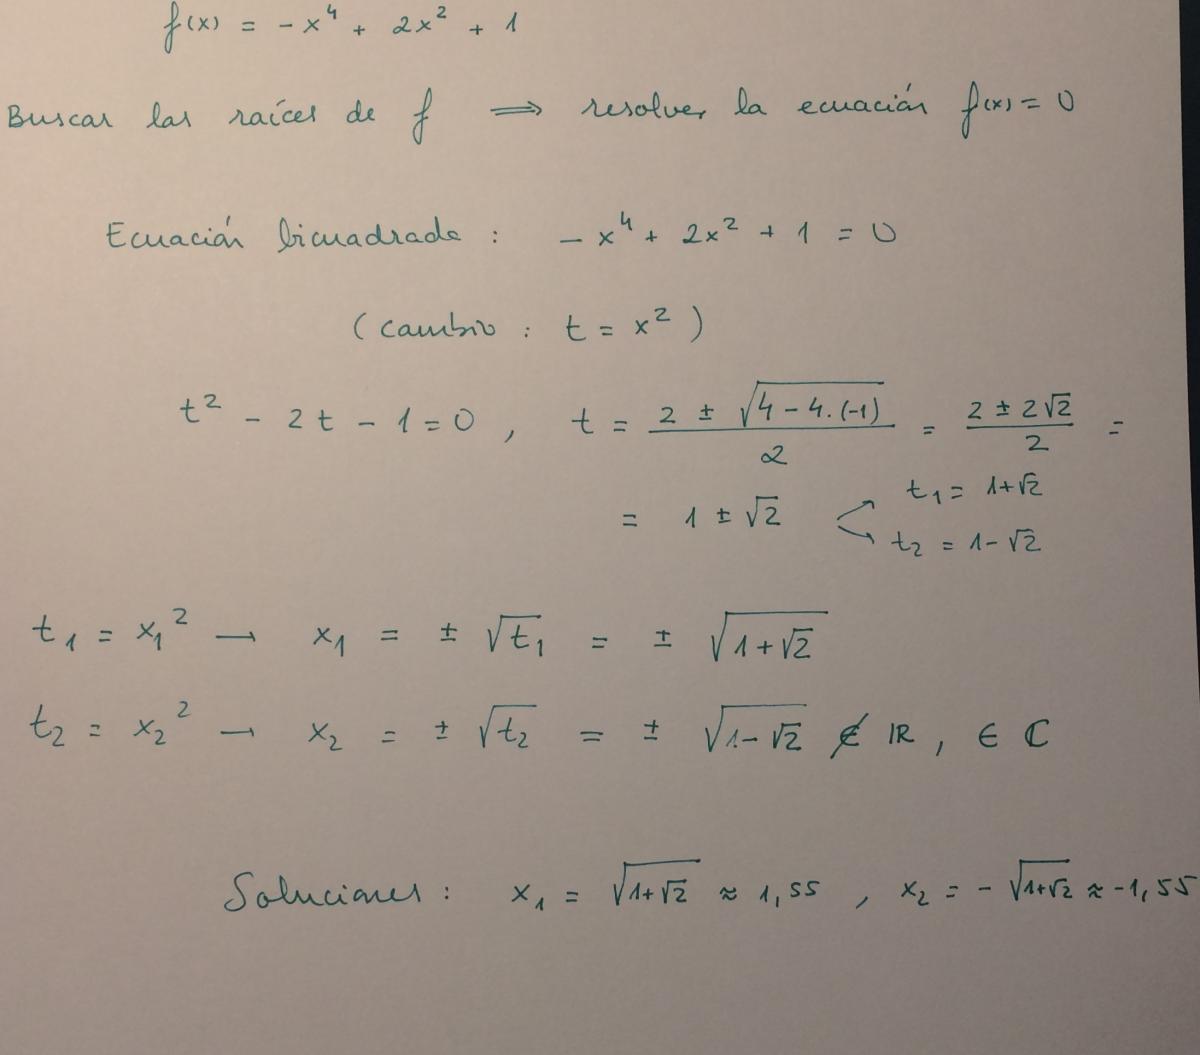 f(x) = -x⁴ + 2x² + 1
Buscar las raíces de f ⟹ resolver la ecuación f(x) = 0
Ecuación bicuadrada : -x⁴ + 2x² + 1 = 0
(cambio : t = x²)
t² - 2t - 1 = 0 , t = (2 ± √(4 - 4·(-1))) / 2 = (2 ± 2√2) / 2 =
= 1 ± √2 < t₁ = 1+√2
t₂ = 1-√2
t₁ = x₁² → x₁ = ± √t₁ = ± √(1+√2)
t₂ = x₂² → x₂ = ± √t₂ = ± √(1-√2) ∉ ℝ , ∈ ℂ
Soluciones : x₁ = √(1+√2) ≈ 1,55 , x₂ = -√(1+√2) ≈ -1,55